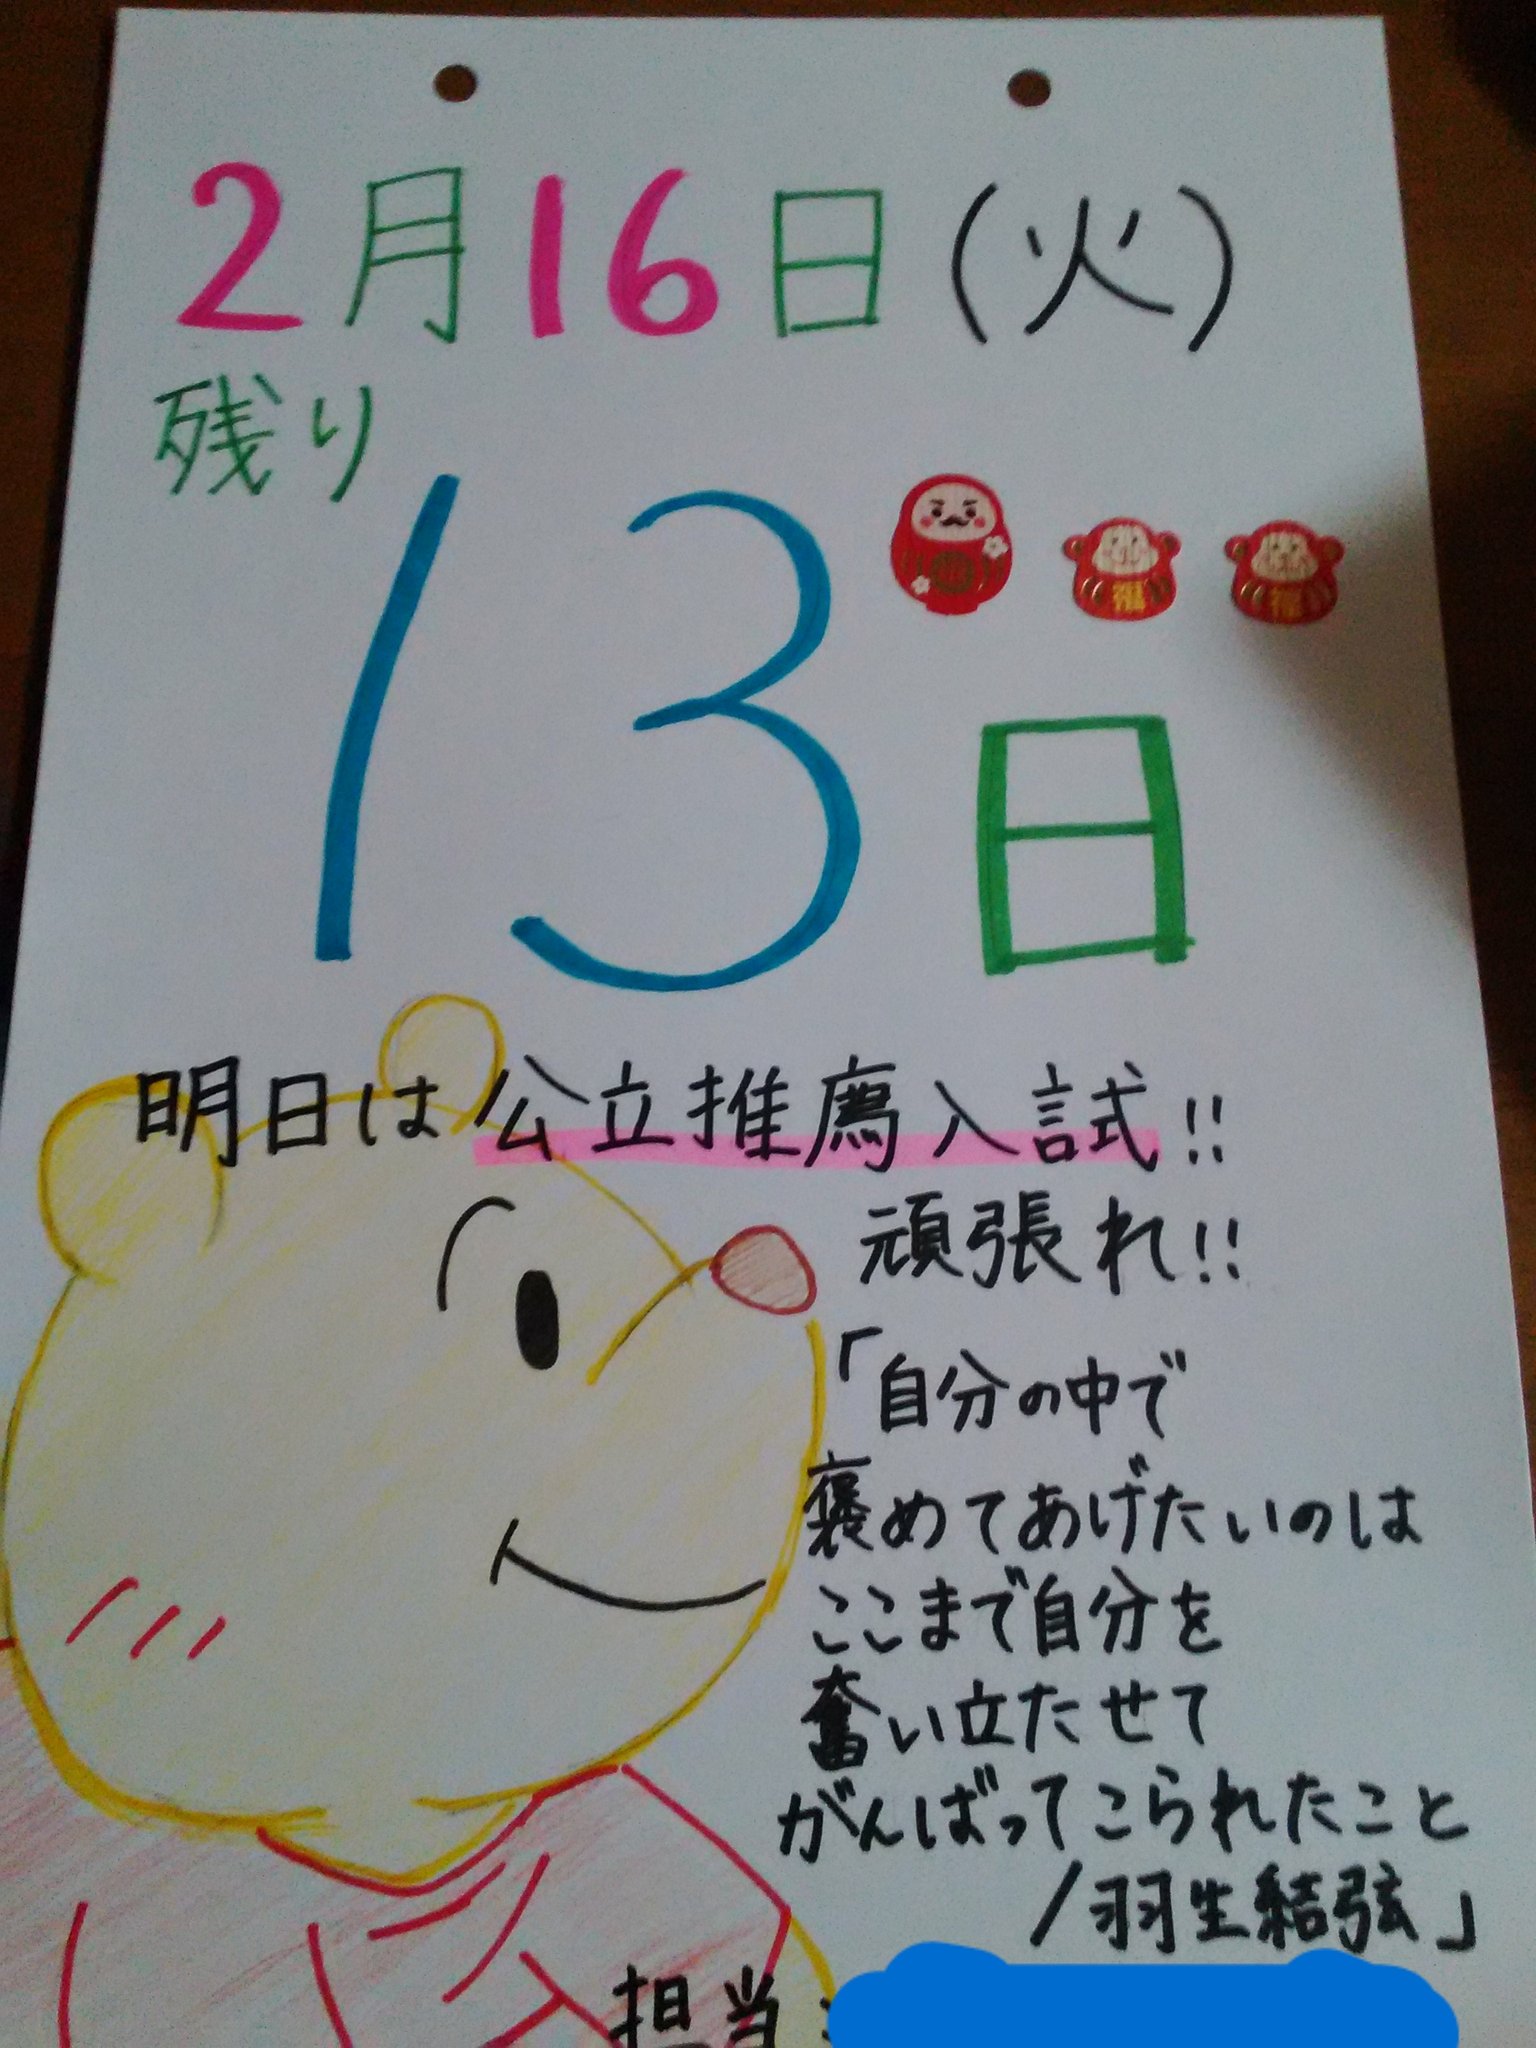 2月16日(火)
残り
13日
明日は公立推薦入試!!
頑張れ!!
「自分の中で
褒めてあげたいのは
ここまで自分を
奮い立たせて
がんばってこられたこと
/羽生結弦」
担当: